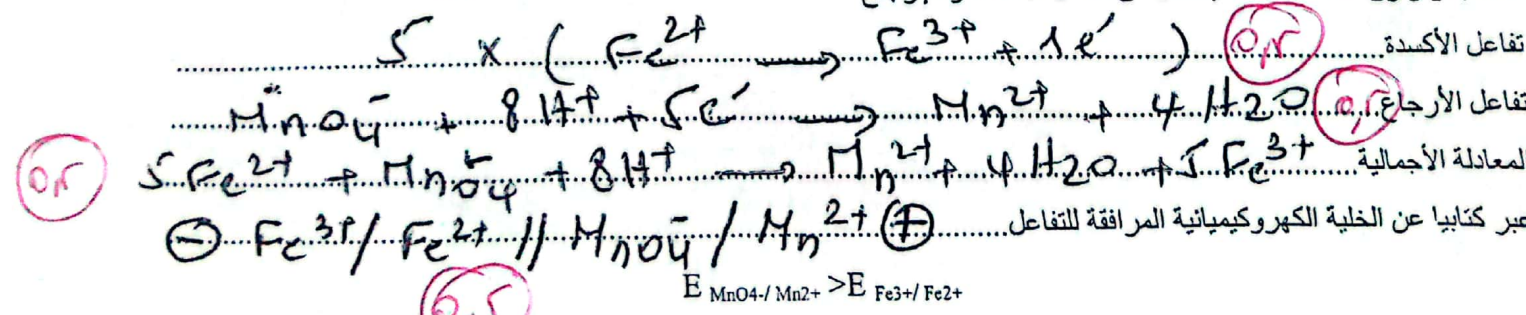 تفاعل الأكسدة 5 x ( Fe²⁺ → Fe³⁺ + 1e⁻ ) 0,5
تفاعل الأرجاع MnO₄⁻ + 8H⁺ + 5e⁻ → Mn²⁺ + 4H₂O 0,5
المعادلة الأجمالية 5Fe²⁺ + MnO₄⁻ + 8H⁺ → Mn²⁺ + 4H₂O + 5Fe³⁺ 0,5
عبر كتابيا عن الخلية الكهروكيميائية المرافقة للتفاعل ⊖ Fe³⁺/Fe²⁺ // MnO₄⁻/Mn²⁺ ⊕
E MnO4-/ Mn2+ >E Fe3+/ Fe2+
0,5